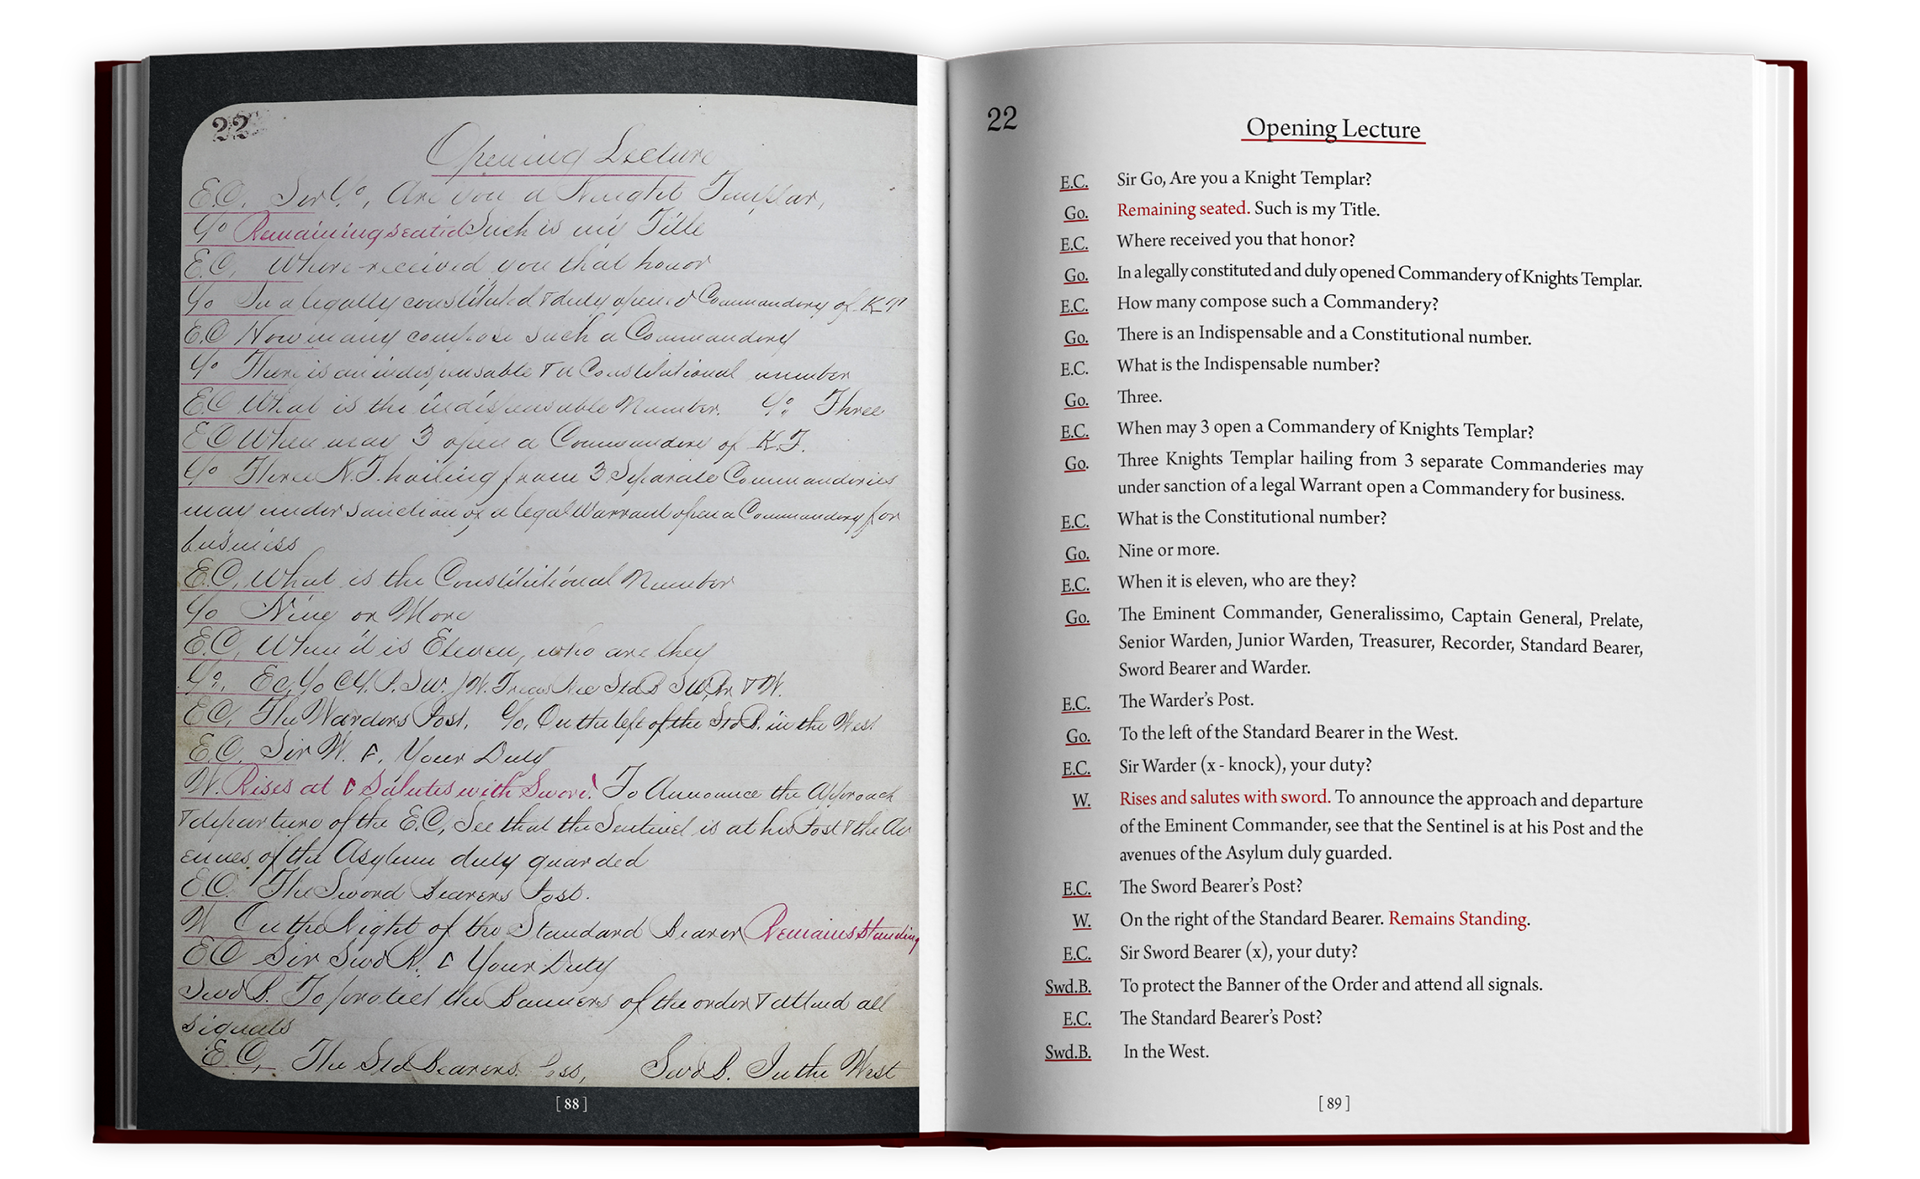 22
Opening Lecture
E.C. Sir Go, Are you a Knight Templar,
Go Remaining seated Such is my Title
E.C. Where received you that honor
Go In a legally constituted & duly opened Commandery of K T
E.C How many compose such a Commandery
Go There is an indispensable & a Constitutional number
E.C What is the indispensable Number. Go Three
E.C When may 3 open a Commandery of K.T.
Go Three K.T. hailing from 3 Separate Commanderies
may under sanction of a legal Warrant open a Commandery for
business
E.C. What is the Constitutional Number
Go Nine or More
E.C, When it is Eleven, who are they
Go. EC, Go CG. P. SW. JW. Treas Rec Std B Sw Br & W.
E.C, The Warders Post. Go. On the left of the Std B. in the West
E.C. Sir W. Your Duty
W. Rises at Salutes with Sword. To Announce the Approach
& departure of the E.C, See that the Sentinel is at his Post & the Av
enues of the Asylum duly guarded
E.C. The Sword Bearers Post.
W On the Right of the Standard Bearer Remains Standing
E.C Sir Swd B. Your Duty
Swd B. To protect the Banners of the order & attend all
signals
E.C, The Std Bearers Swd B. In the West
[ 88 ]
22
Opening Lecture
E.C. Sir Go, Are you a Knight Templar?
Go. Remaining seated. Such is my Title.
E.C. Where received you that honor?
Go. In a legally constituted and duly opened Commandery of Knights Templar.
E.C. How many compose such a Commandery?
Go. There is an Indispensable and a Constitutional number.
E.C. What is the Indispensable number?
Go. Three.
E.C. When may 3 open a Commandery of Knights Templar?
Go. Three Knights Templar hailing from 3 separate Commanderies may
under sanction of a legal Warrant open a Commandery for business.
E.C. What is the Constitutional number?
Go. Nine or more.
E.C. When it is eleven, who are they?
Go. The Eminent Commander, Generalissimo, Captain General, Prelate,
Senior Warden, Junior Warden, Treasurer, Recorder, Standard Bearer,
Sword Bearer and Warder.
E.C. The Warder's Post.
Go. To the left of the Standard Bearer in the West.
E.C. Sir Warder (x - knock), your duty?
W. Rises and salutes with sword. To announce the approach and departure
of the Eminent Commander, see that the Sentinel is at his Post and the
avenues of the Asylum duly guarded.
E.C. The Sword Bearer's Post?
W. On the right of the Standard Bearer. Remains Standing.
E.C. Sir Sword Bearer (x), your duty?
Swd.B. To protect the Banner of the Order and attend all signals.
E.C. The Standard Bearer's Post?
Swd.B. In the West.
[ 89 ]